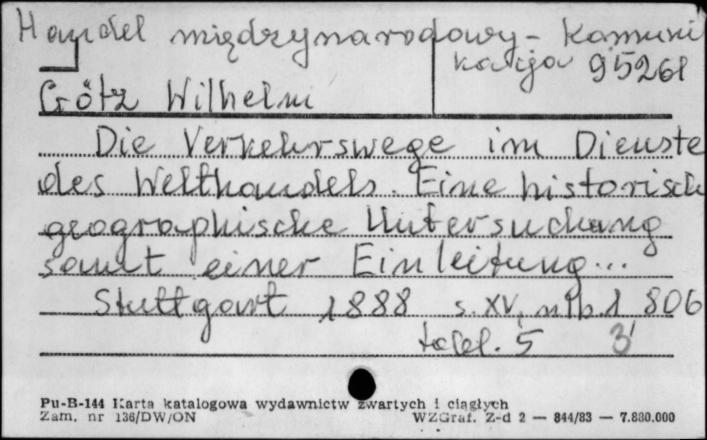 Handel międzynarodowy - Komuni
kacja 95261
Götz Wilhelm
Die Verkehrswege im Dienste
des Welthandels. Eine historisch
geographische Untersuchung
samt einer Einleitung...
Stuttgart 1888 s. XV, 806
tabel. 5 3'
Pu-B-144 Karta katalogowa wydawnictw zwartych i ciągłych
Zam. nr 136/DW/ON WZGraf. Z-d 2 — 844/83 — 7.830.000